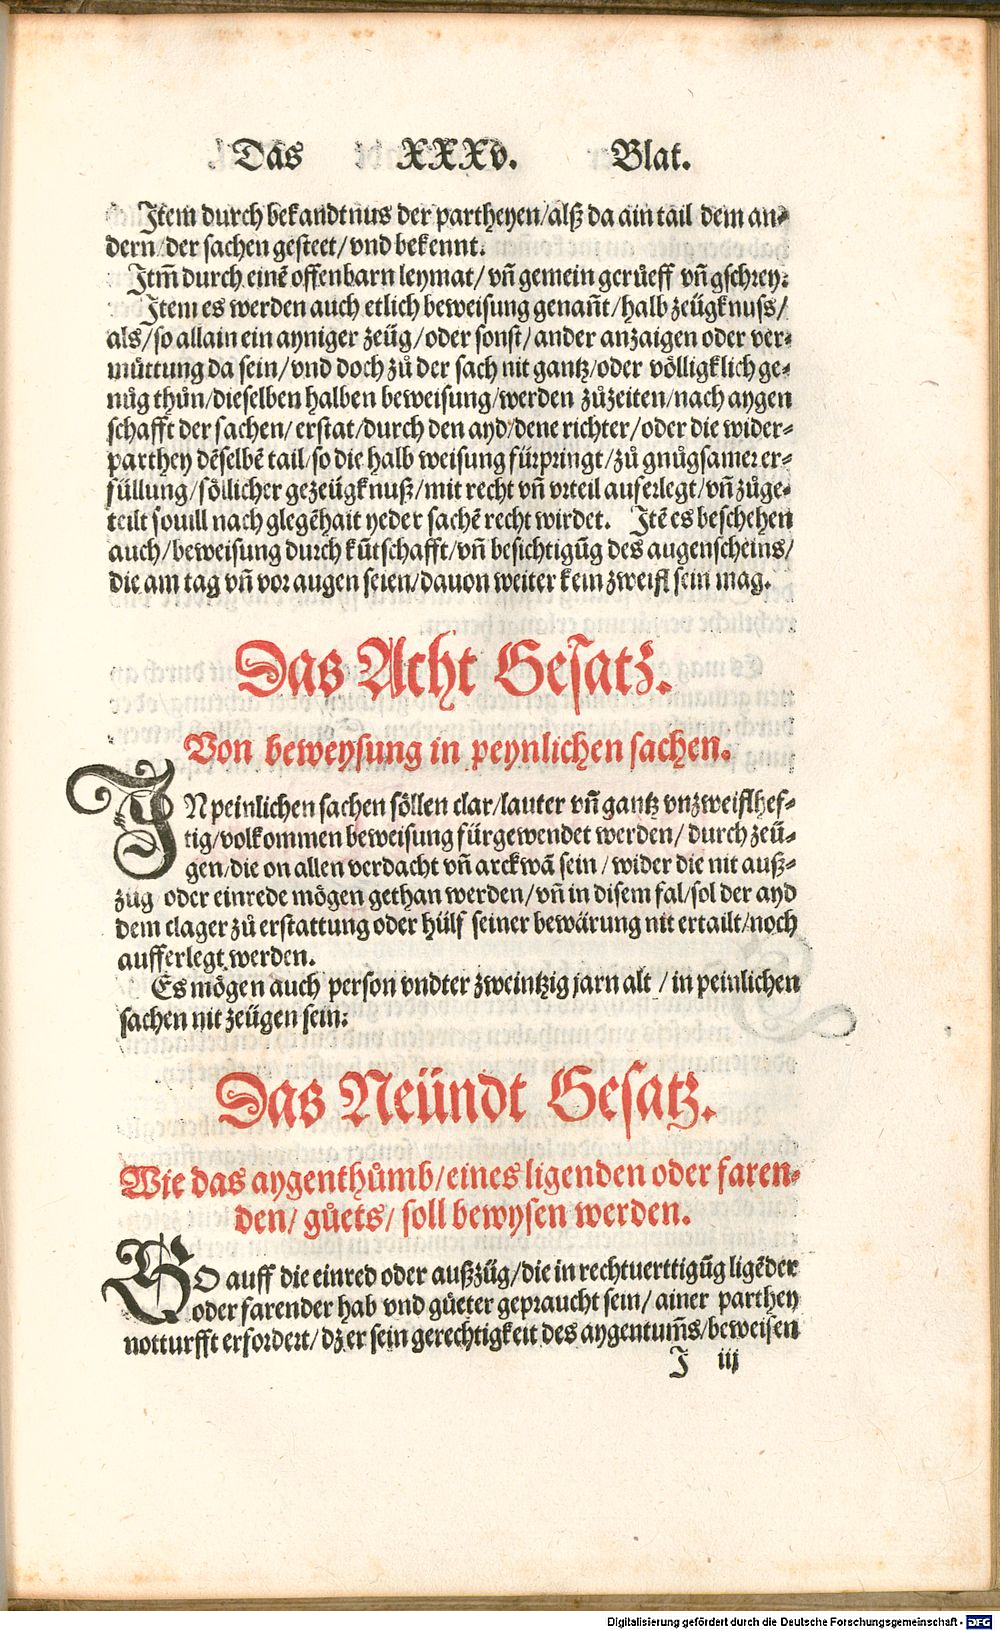 Das XXXv. Blat.
Item durch bekandtnus der partheyen/alß da ain tail dem an⸗
dern/der sachen gesteet/vnd bekennt.
Itm̃ durch einẽ offenbarn leymat/vñ gemein gerůeff vñ gschrey:
Item es werden auch etlich beweisung genañt/halb zeügknuss/
als/so allain ein ayniger zeüg/oder sonst/ander anzaigen oder ver⸗
můttung da sein/vnd doch zů der sach nit gantz/oder völligklich ge⸗
nůg thůn/dieselben halben beweisung/werden zůzeiten/nach aygen
schafft der sachen/erstat/durch den ayd/dene richter/oder die wider⸗
parthey dẽselbẽ tail/so die halb weisung fürpringt/zů gnůgsamer er⸗
füllung/söllicher gezeügknuß/mit recht vñ vrteil auferlegt/vñ zůge⸗
teilt souill nach glegẽhait yeder sachẽ recht wirdet. Itẽ es beschehen
auch/beweisung durch kũtschafft/vñ besichtigũg des augenscheins/
die am tag vñ vor augen seien/dauon weiter kein zweifl sein mag.
Das Acht Gesatz.
Von beweysung in peynlichen sachen.
IN peinlichen sachen söllen clar/lauter vñ gantz vnzweiflhef⸗
tig/volkommen beweisung fürgewendet werden/durch zeü⸗
gen/die on allen verdacht vñ arckwã sein/wider die nit auß⸗
züg oder einrede mögen gethan werden/vñ in disem fal/sol der ayd
dem clager zů erstattung oder hülf seiner bewärung nit ertailt/noch
aufferlegt werden.
Es mögen auch person vndter zweintzig jarn alt/in peinlichen
sachen nit zeügen sein:
Das Neündt Gesatz.
Wie das aygenthůmb/eines ligenden oder faren⸗
den/gůets/soll bewysen werden.
SO auff die einred oder außzüg/die in rechtuerttigũg ligẽder
oder farender hab vnd güeter gepraucht sein/ainer parthey
notturfft erfordert/dz er sein gerechtigkeit des aygentum̃s/beweisen
J iij
Digitalisierung gefördert durch die Deutsche Forschungsgemeinschaft - DFG